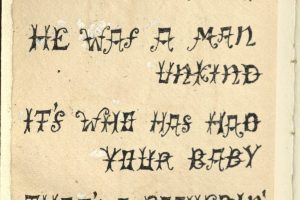 HE WAS A MAN
UNKIND
IT'S WHO HAS HAD
YOUR BABY
THAT'S A